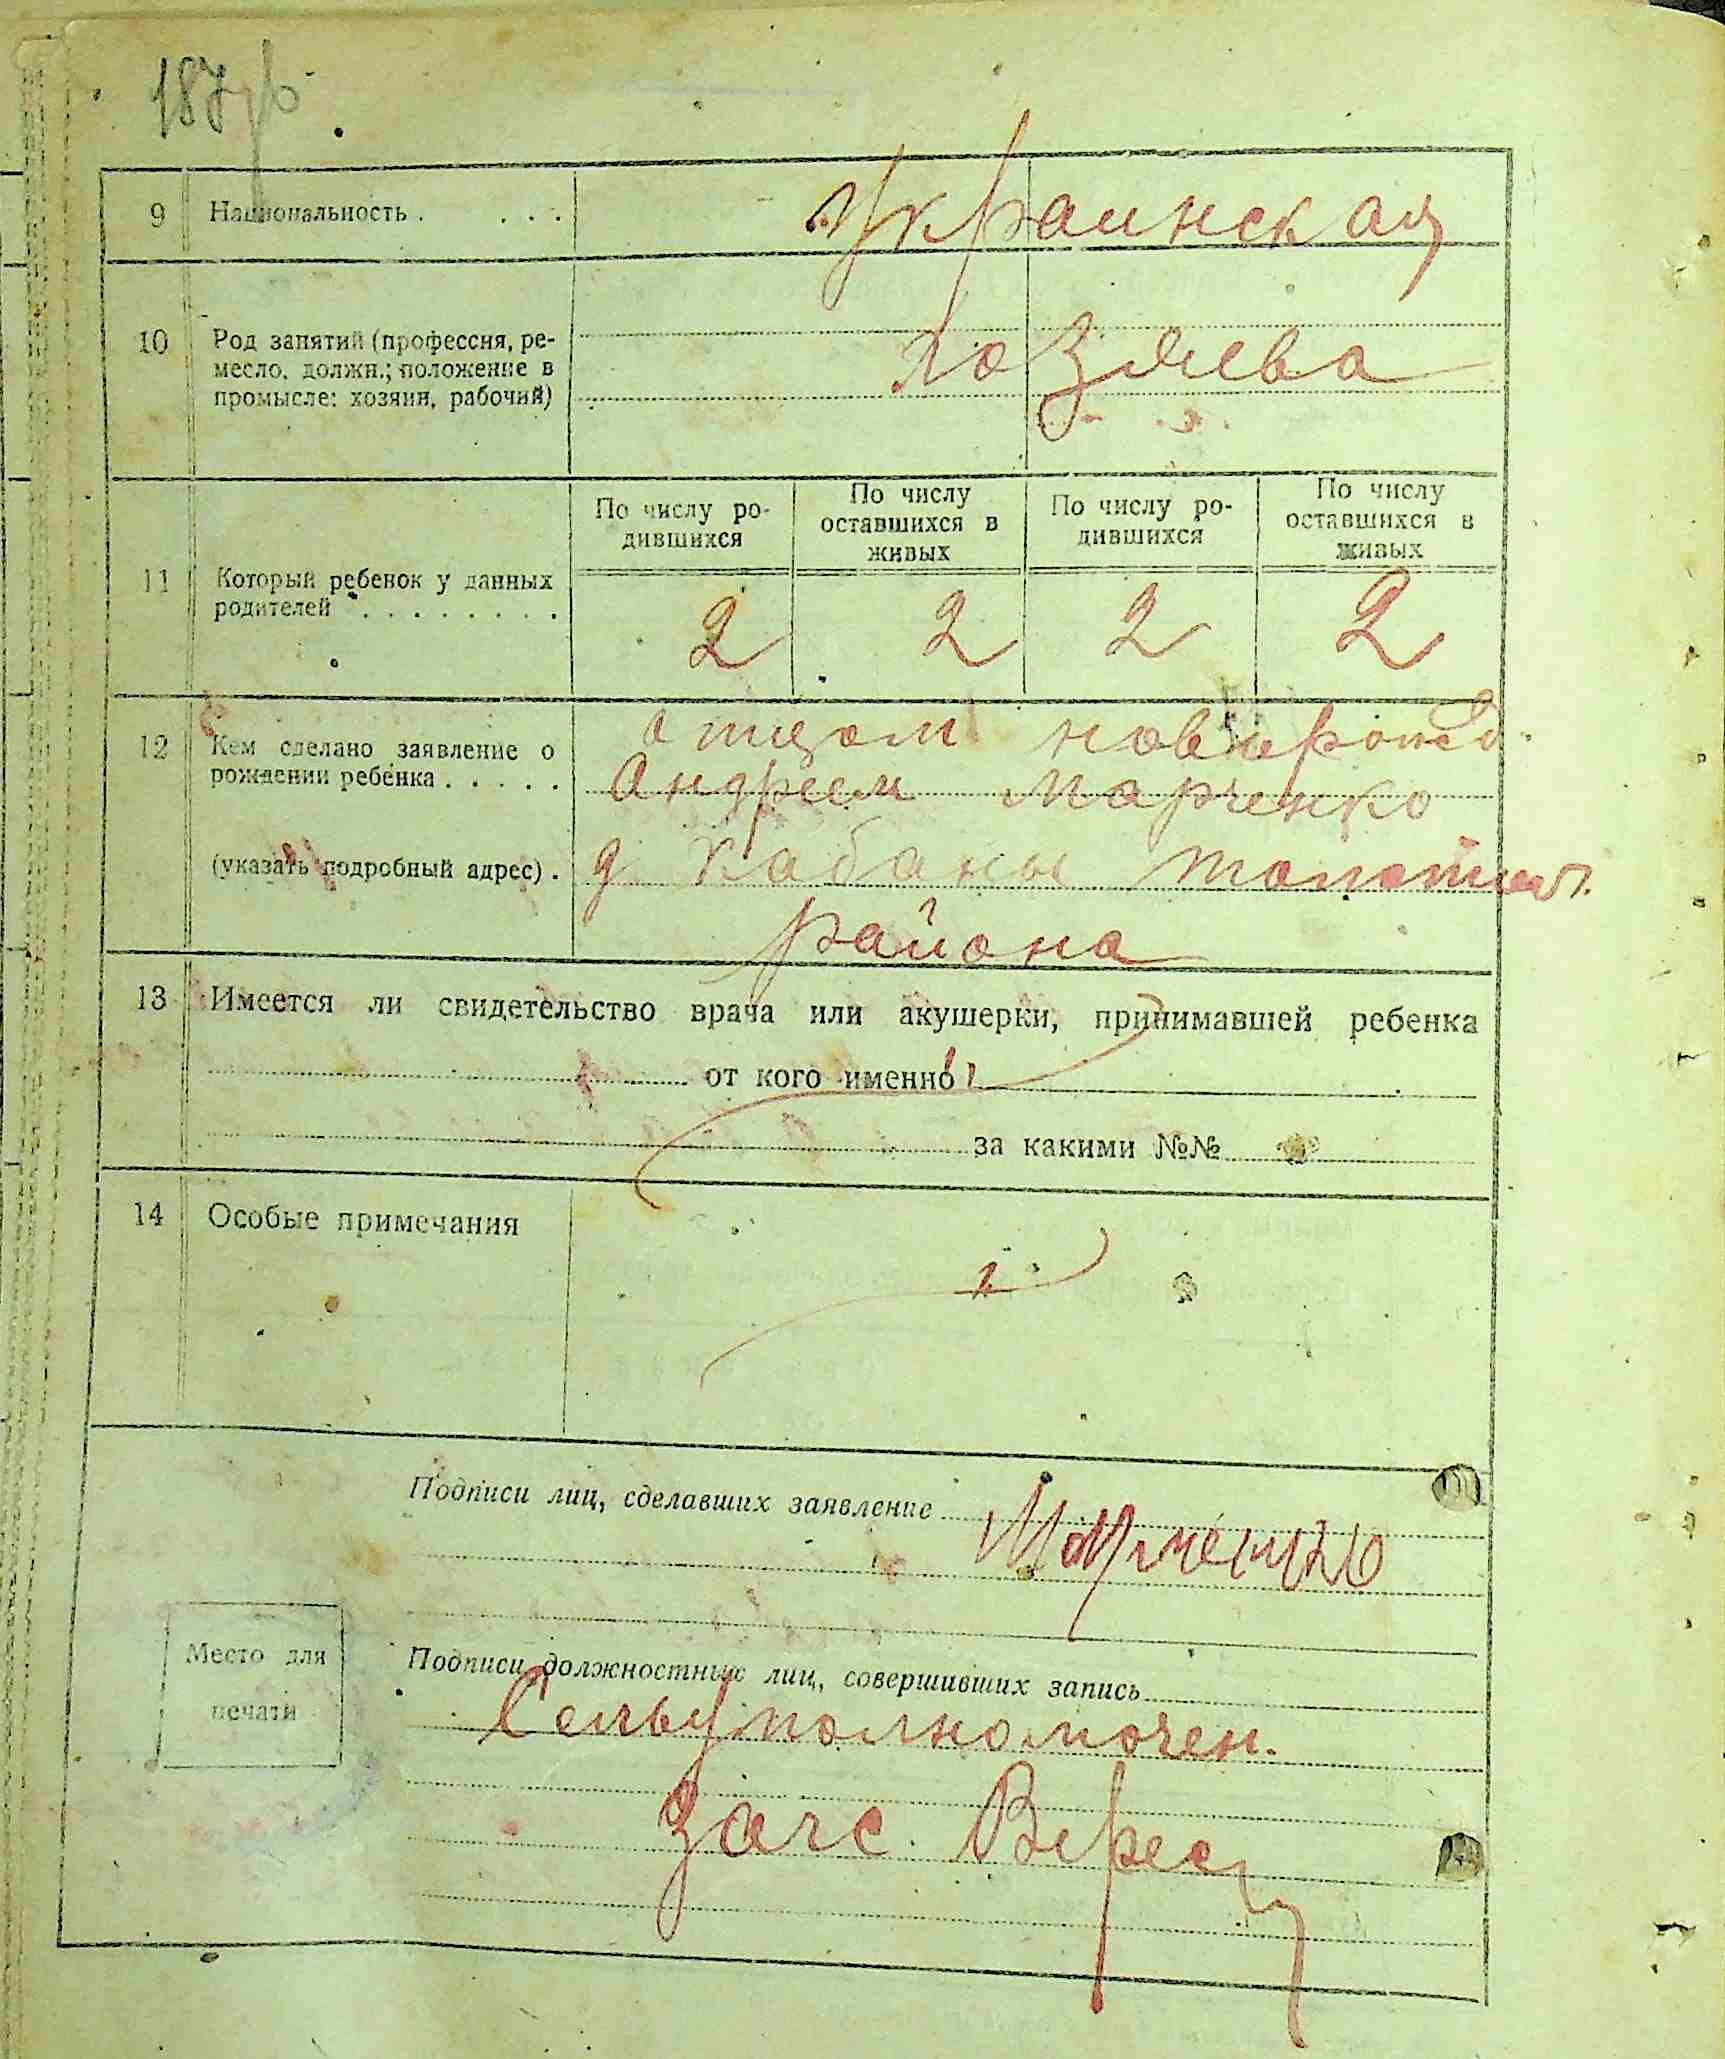 187
9 Национальность . . . . Украинская
10 Род занятий (профессия, ре-
месло, должн.; положение в
промысле: хозяин, рабочий)
хозяева
По числу ро-
дившихся
По числу
оставшихся в
живых
По числу ро-
дившихся
По числу
оставшихся в
живых
11 Который ребенок у данных
родителей . . . . . . . . .
2 2 2 2
12 Кем сделано заявление о
рождении ребенка . . . . .
(указать подробный адрес) .
отцом
Андреем Марченко
д Кабаны
района
13 Имеется ли свидетельство врача или акушерки, принимавшей ребенка
от кого именно
за какими №№
14 Особые примечания
Подписи лиц, сделавших заявление
Марченко
Место для
печати
Подписи должностных лиц, совершивших запись
Сельуполномочен.
загс. Верес